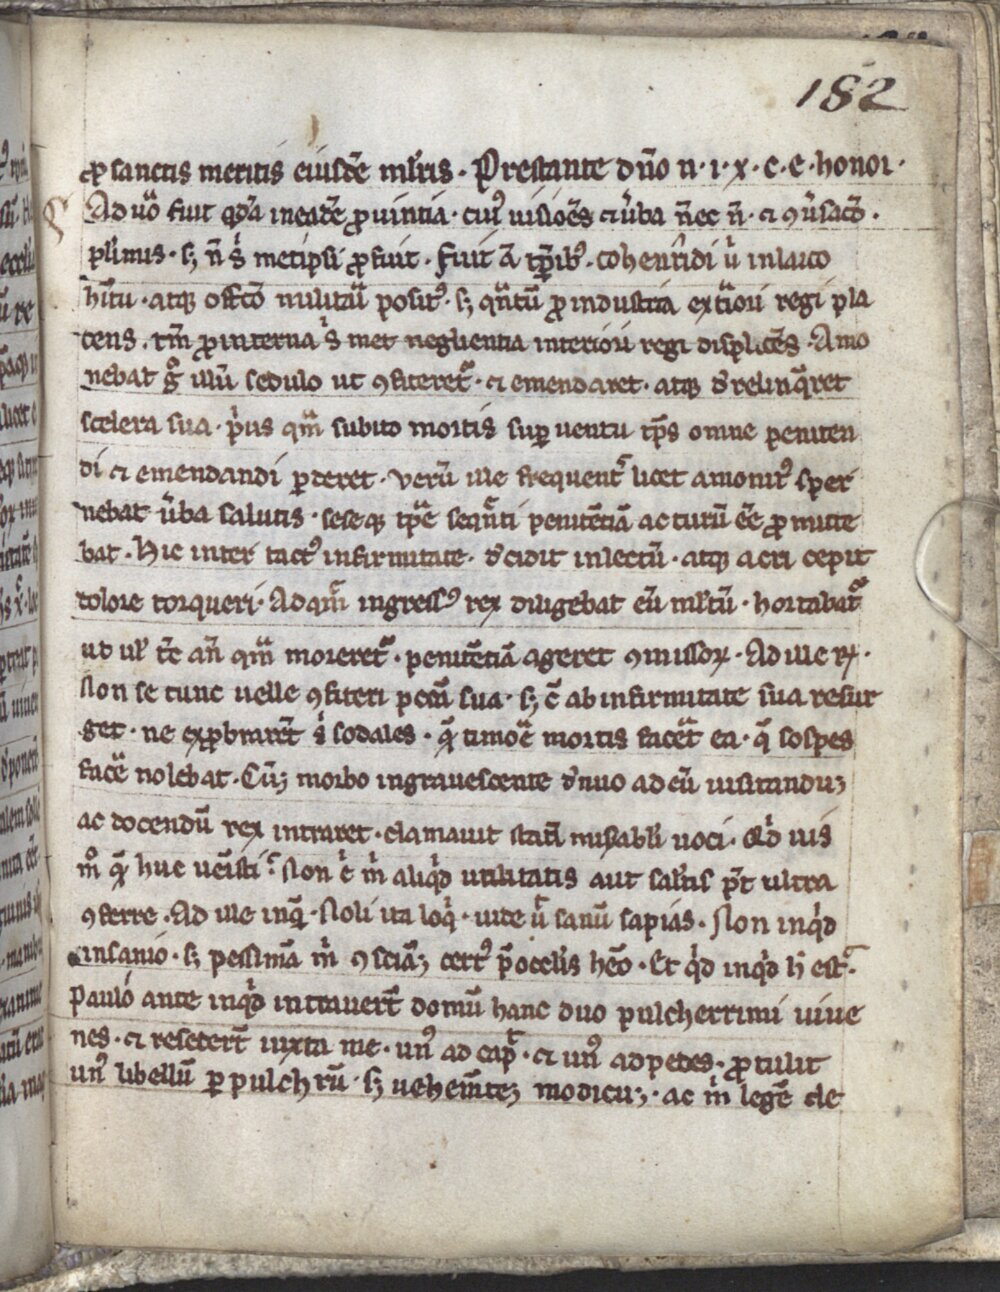 182
ꝓ sanctis meritis eiusdē mr̄is · Prestante dn̄o n · i · x · c · e · honoı ·
Ad uō fuit qdā ineadē ꝓuintia · cuiꝰ uisiōēs ⁊ ūba n̄ec n̄ · ⁊ ꝯūsacō ·
plimis · sꝫ n̄ s metipsi ꝓfuit · fuit ā tp̄ibꝰ · cohenridi ū inlaico
hītu · atqꝫ offcō militū positꝰ · sꝫ qn̄tū ꝓ industria exteriori regi pla
cens · tm̄ ꝓ interna s met neglientia interiori regi displicēs · Amo
nebat g illū sedulo ut ꝯfiteret᷑ · ⁊ emendaret · atqꝫ drelinqret
scelera sua · pus qm̄ subito mortis suꝑ uentu tp̄s omne peniten
di ⁊ emendandi ꝑderet · Verū ille frequent licet amonitꝰ sper
nebat ūba salutis · seseqꝫ tp̄e seqn̄ti penitētiā acturū eē ꝓmitte
bat · Hic inter tactꝰ infirmitate · dcidit inlectū · atqꝫ acri cepit
dolore torqueri · Ad qm̄ ingressꝰ rex diligebat eū mltū · hortabat᷑
ut ul tc̄ an̄ qm̄ moreret᷑ · penitētiā ageret ꝯmissoꝝ · Ad ille rꝭ ·
Non se tunc uelle ꝯfiteri pccā sua · sꝫ c̄ ab infirmitate sua resur
get · ne exꝓbrarēt s sodales · q timore mortis facet ea · q sospes
face nolebat · Cūꝫ morbo ingrauescente dnuo ad eū uisitanduꝫ
ac docendū rex intraret · clamauit statī misabli uoci · Qd uis
m q huc uēisti · Non ē m aliqd utilitatis aut saltis pt ultra
ꝯferre · Ad ille inq · Noli ita loq · uite ū sanū sapias · Non inqd
insanio · sꝫ pessimā m ꝯsciāꝫ certꝰ p̄ ocelis hēo · Et qd inqd h est ·
Paulo ante inqd intrauert̄ domū hanc duo pulcherrimi iuue
nes · ⁊ resedert̄ iuxta me · unꝰ ad cap · ⁊ unꝰ ad pedes · ꝓtulit
unꝰ libellū ꝑpulchrū · sꝫ uehemt̄eꝫ modicuꝫ · ac m legē de